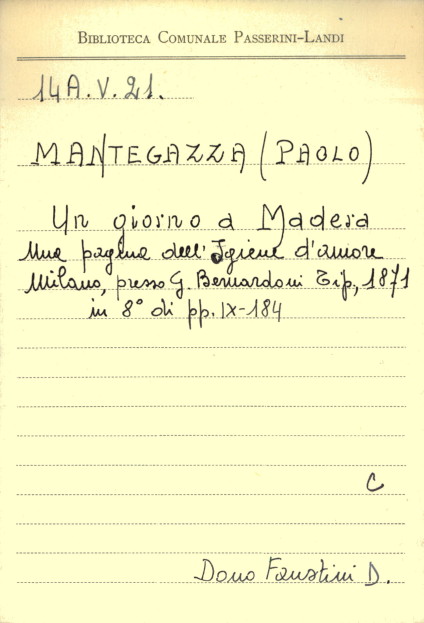 BIBLIOTECA COMUNALE PASSERINI-LANDI
14A.V.21.
MANTEGAZZA (PAOLO)
Un giorno a Madera
Una pagina dell'Igiene d'amore
Milano, presso G. Bernardoni Tip., 1871
in 8° di pp. IX-184
C
Dono Faustini D.